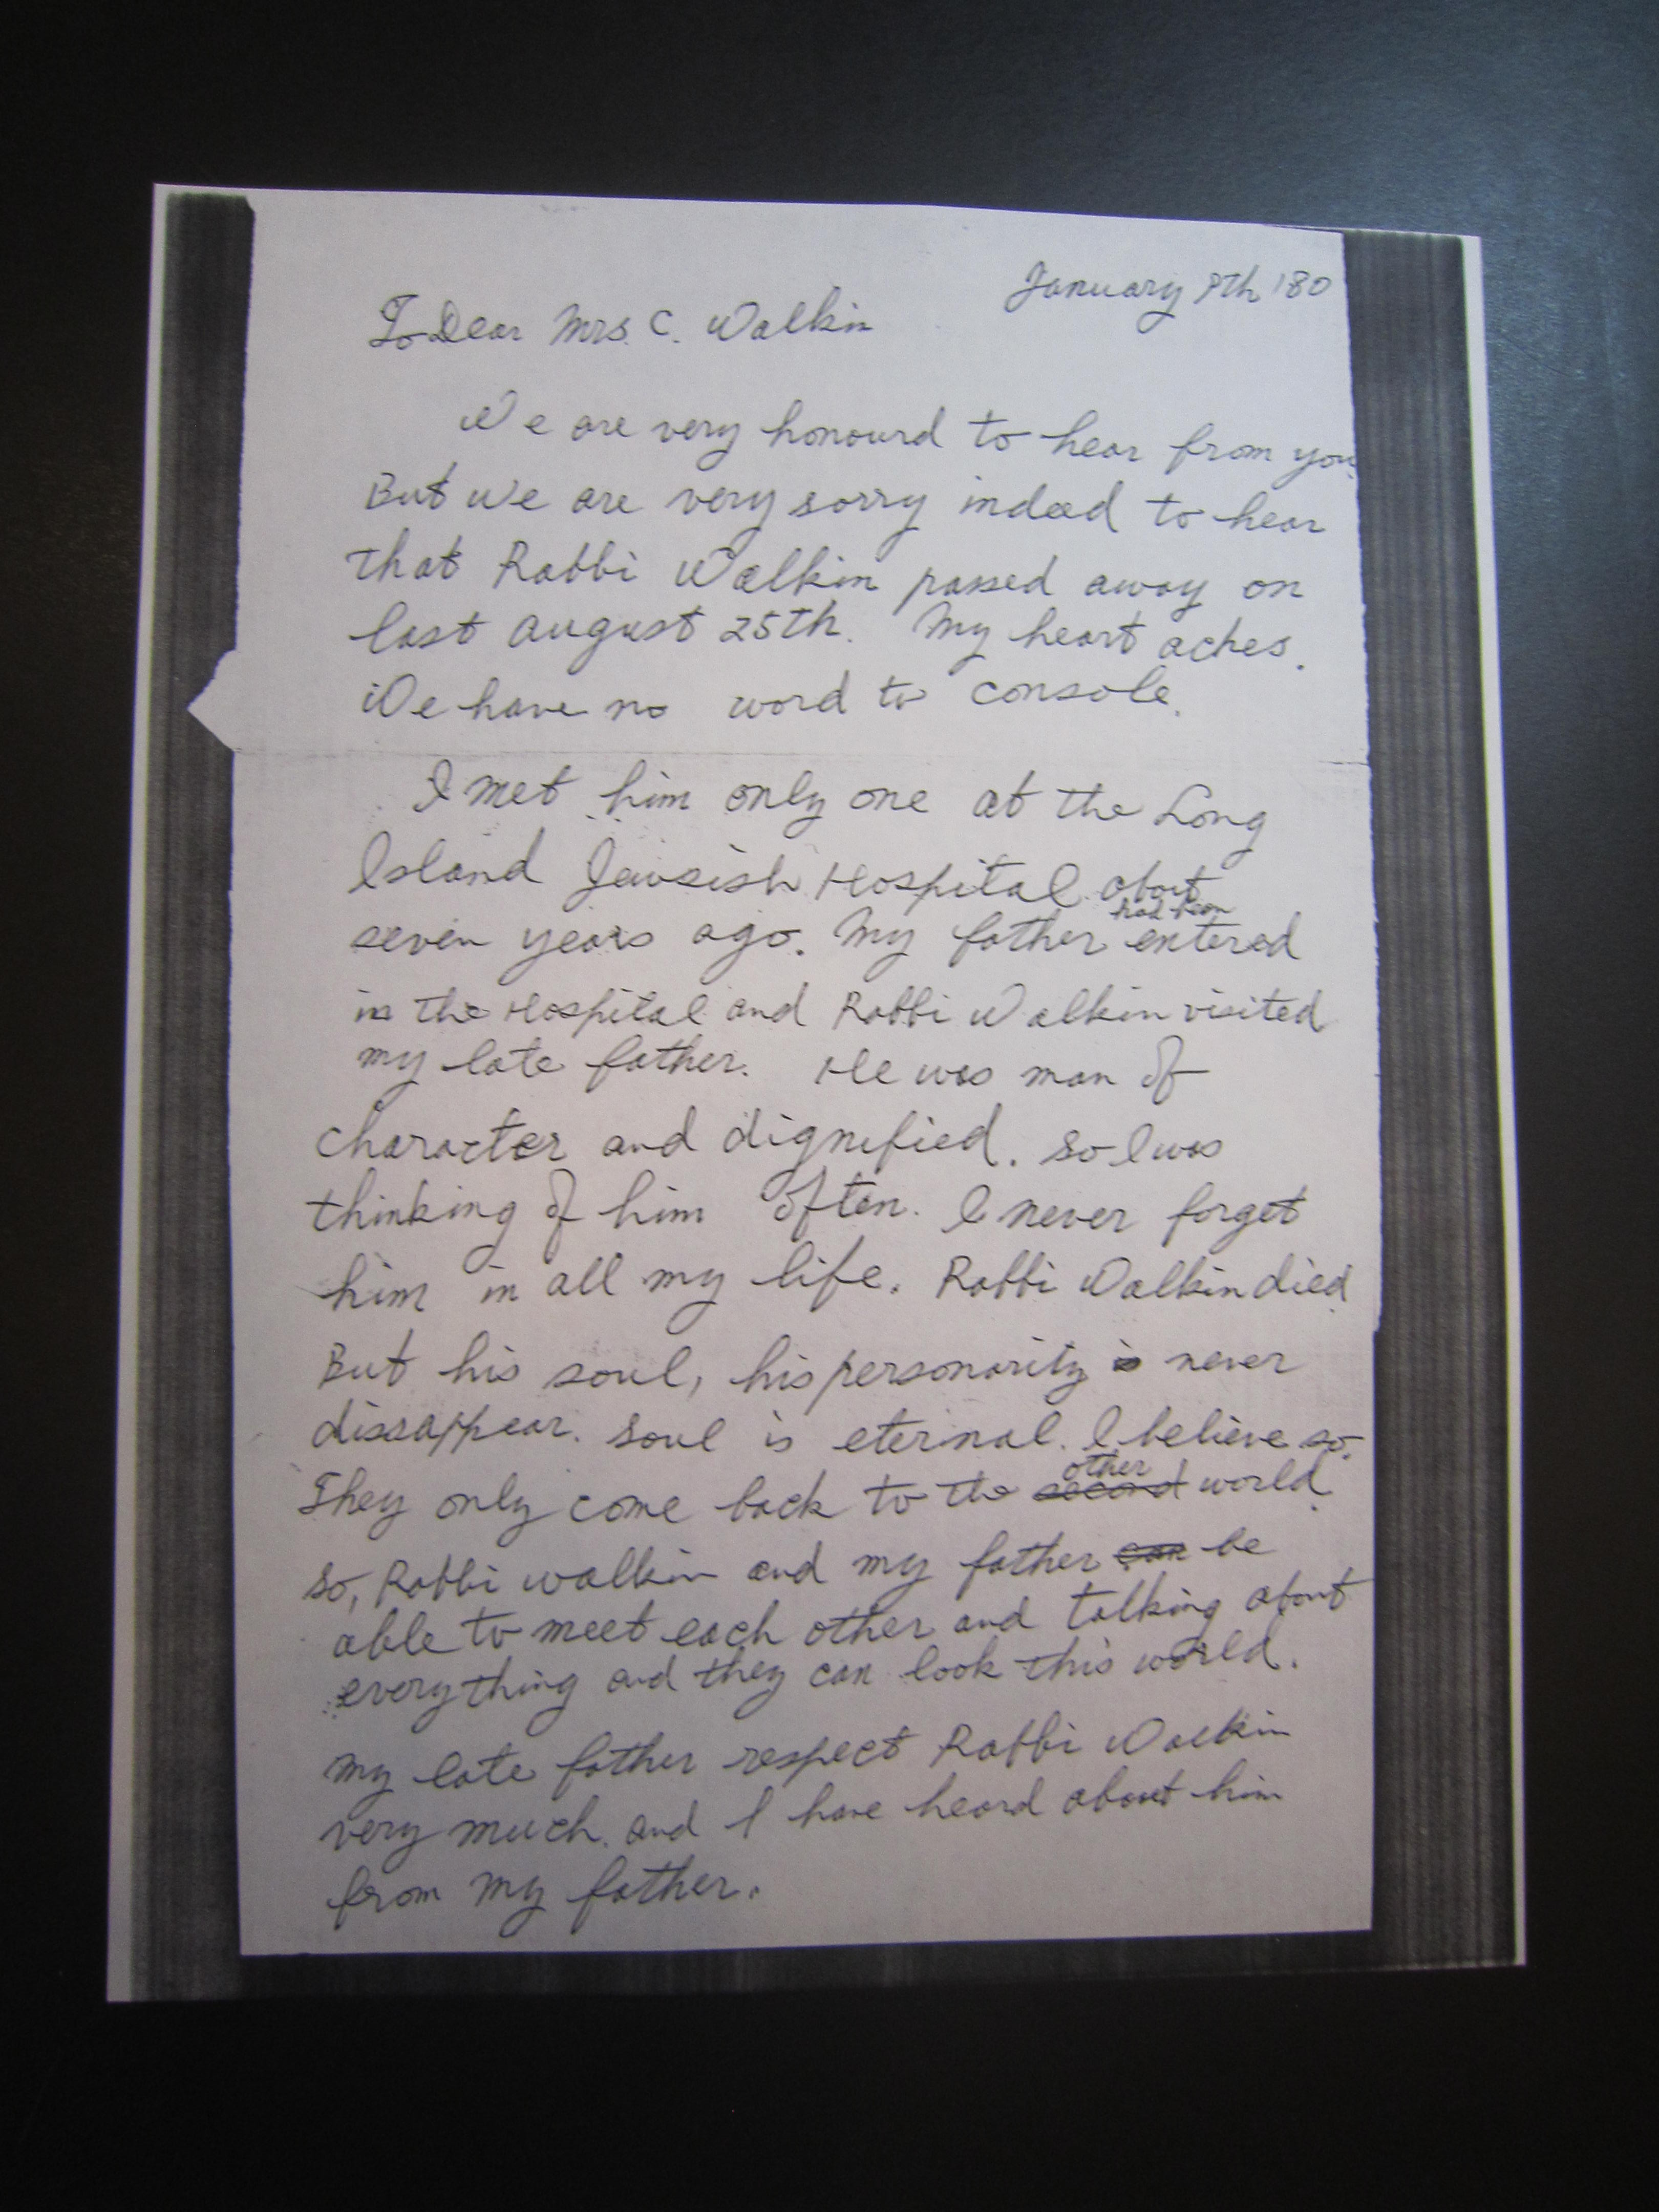 January 9th '80
To Dear Mrs. C. Walkin
We are very honourd to hear from you.
But we are very sorry indeed to hear
that Rabbi Walkin passed away on
last august 25th. My heart aches.
We have no word to console.
I met him only one at the Long
Island Jewsish Hospital about
seven years ago. My father had been entered
in the Hospital and Rabbi Walkin visited
my late father. He was man of
character and dignified. So I was
thinking of him often. I never forget
him in all my life. Rabbi Walkin died
But his soul, his personarity is never
dissappear. Soul is eternal. I believe so.
They only come back to the second other world.
So, Rabbi walkin and my father can be
able to meet each other and talking about
everything and they can look this world.
My late father respect Rabbi Walkin
very much. and I have heard about him
from my father.